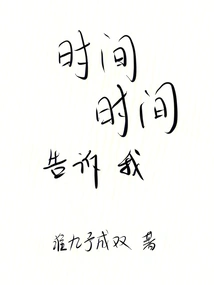 时间
时间
告诉 我
淮九予成双 著